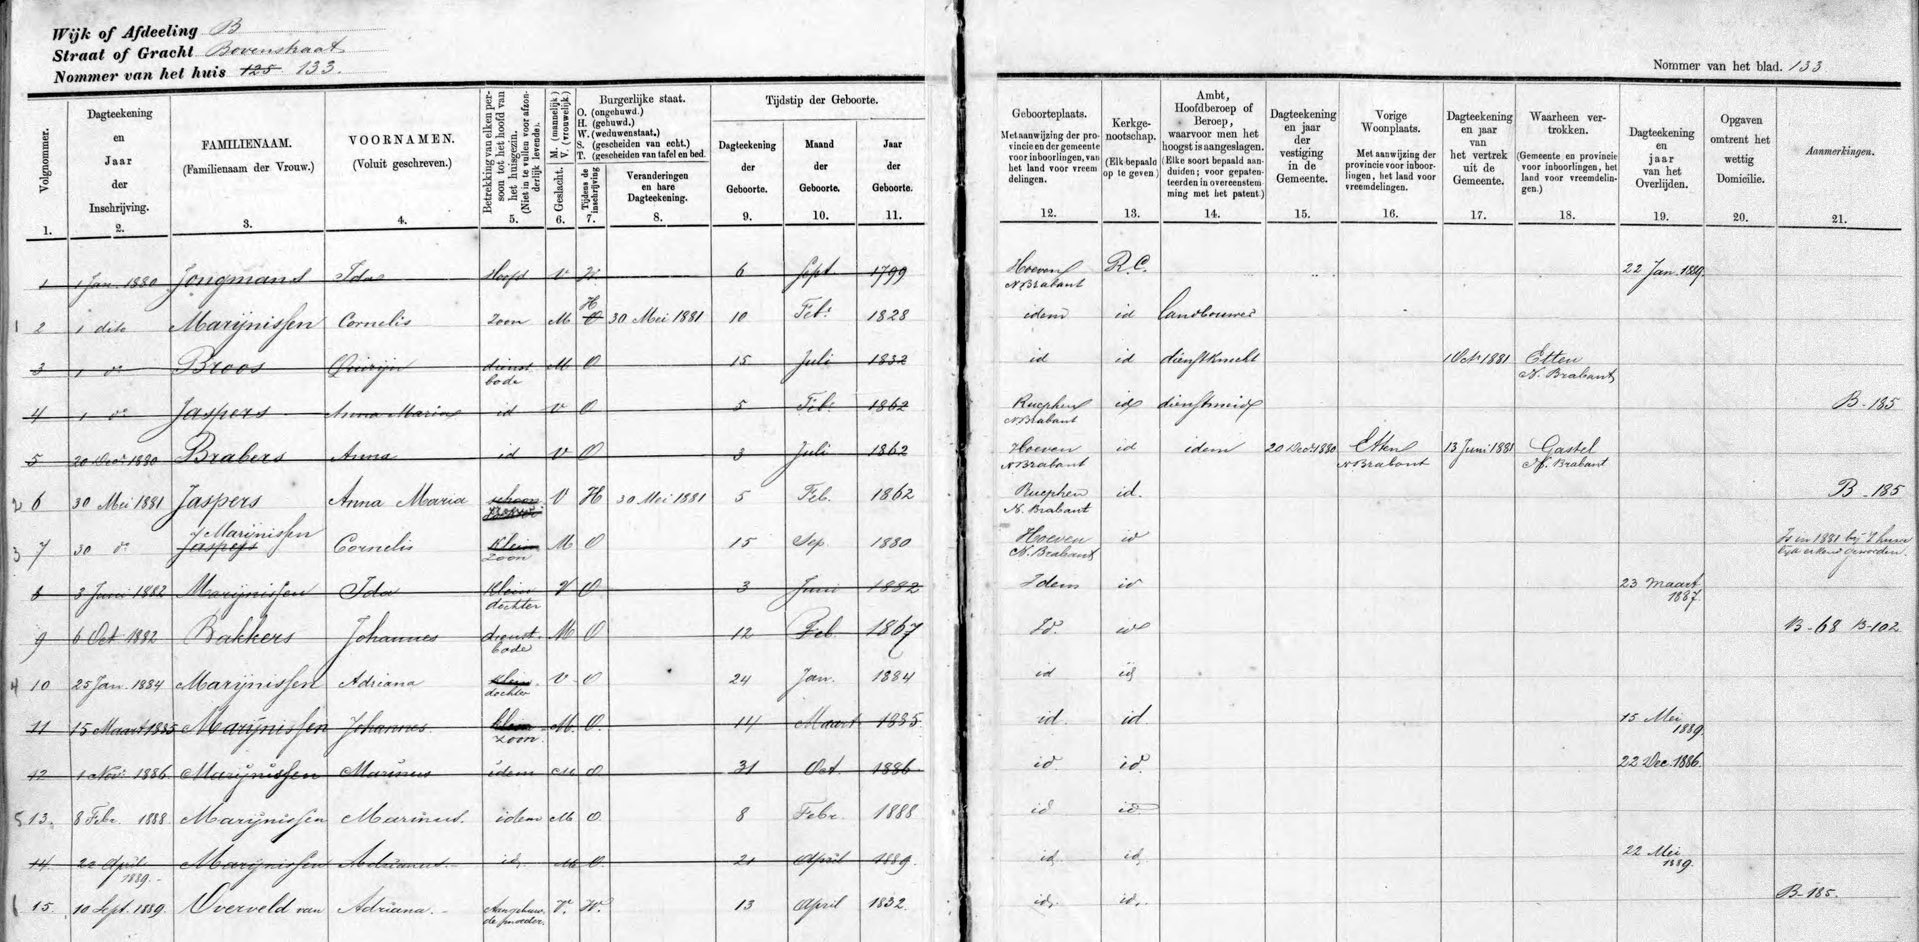 Wijk of Afdeeling B
Straat of Gracht Bovenstraat
Nommer van het huis 125 133.
Nommer van het blad. 133
Volgnommer. 1.
Dagteekening en Jaar der Inschrijving. 2.
FAMILIENAAM. (Familienaam der Vrouw.) 3.
VOORNAMEN. (Voluit geschreven.) 4.
Betrekking van elken persoon tot het hoofd van het huisgezin. (Niet in te vullen voor afzonderlijk levende). 5.
Geslacht. M. (mannelijk) V. (vrouwelijk) 6.
Burgerlijke staat.
O. (ongehuwd.)
H. (gehuwd.)
W. (weduwenstaat.)
S. (gescheiden van echt.)
T. (gescheiden van tafel en bed.
Tijdens de inschrijving 7.
Veranderingen en hare Dagteekening. 8.
Tijdstip der Geboorte.
Dagteekening der Geboorte. 9.
Maand der Geboorte. 10.
Jaar der Geboorte. 11.
Geboorteplaats. Met aanwijzing der provincie en der gemeente voor inboorlingen, van het land voor vreemdelingen. 12.
Kerkgenootschap. (Elk bepaald op te geven) 13.
Ambt, Hoofdberoep of Beroep, waarvoor men het hoogst is aangeslagen. (Elke soort bepaald aanduiden; voor gepatenteerden in overeenstemming met het patent) 14.
Dagteekening en jaar der vestiging in de Gemeente. 15.
Vorige Woonplaats. Met aanwijzing der provincie voor inboorlingen, het land voor vreemdelingen. 16.
Dagteekening en jaar van het vertrek uit de Gemeente. 17.
Waarheen vertrokken. (Gemeente en provincie voor inboorlingen, het land voor vreemdelingen.) 18.
Dagteekening en jaar van het Overlijden. 19.
Opgaven omtrent het wettig Domicilie. 20.
Aanmerkingen. 21.
1 1 Jan. 1880 Jongmans Ida Hoofd V W. 6 Sept 1799 Hoeven N Brabant R.C. 22 Jan. 1889.
1 2 1 dito Marijnissen Cornelis Zoon M H O 30 Mei 1881 10 Feb. 1828 idem id Landbouwer
3 1 do Broos Quirijn dienstbode M O 15 Juli 1832 id id dienstknecht 1 Oct 1881 Etten N. Brabant
4 1 do Jaspers Anna Maria id V O 5 Feb. 1862 Rucphen N Brabant id dienstmeid B-185
5 20 Dec. 1880 Brabers Anna id V O 3 Juli 1862 Hoeven N Brabant id idem 20 Dec. 1880 Etten N Brabant 13 Juni 1881 Gastel N. Brabant
2 6 30 Mei 1881 Jaspers Anna Maria schoondochter V H 30 Mei 1881 5 Feb. 1862 Rucphen N. Brabant id. B-185
3 7 30 do Marijnissen Jaspers Cornelis Kleinzoon M O 15 Sep. 1880 Hoeven N. Brabant id Is in 1881 bij 't huwelijk erkend geworden.
8 3 Juni 1882 Marijnissen Ida Kleindochter V O 3 Juni 1882 Idem id 23 Maart 1887.
9 6 Oct 1882 Bakkers Johannes dienstbode M O 12 Feb 1867 Id. id B-68 B-102
4 10 25 Jan. 1884 Marijnissen Adriana Kleindochter V O 24 Jan. 1884 id id
11 15 Maart 1885 Marijnissen Johannes Kleinzoon. M. O. 14 Maart 1885. id. id. 15 Mei 1889.
12 1 Nov. 1886 Marijnissen Marinus idem M O 31 Oct. 1886 id. id. 22 Dec. 1886.
5 13. 8 Febr. 1888. Marijnissen Marinus. idem M O. 8 Febr. 1888 id id.
14 22 April 1889. Marijnissen Adrianus. id. M O 21 April 1889. id. id. 22 Mei 1889.
15. 10 Sept. 1889. Overveld van Adriana. Aangehuwde moeder. V. W. 13 April 1832. id. id. B-185.